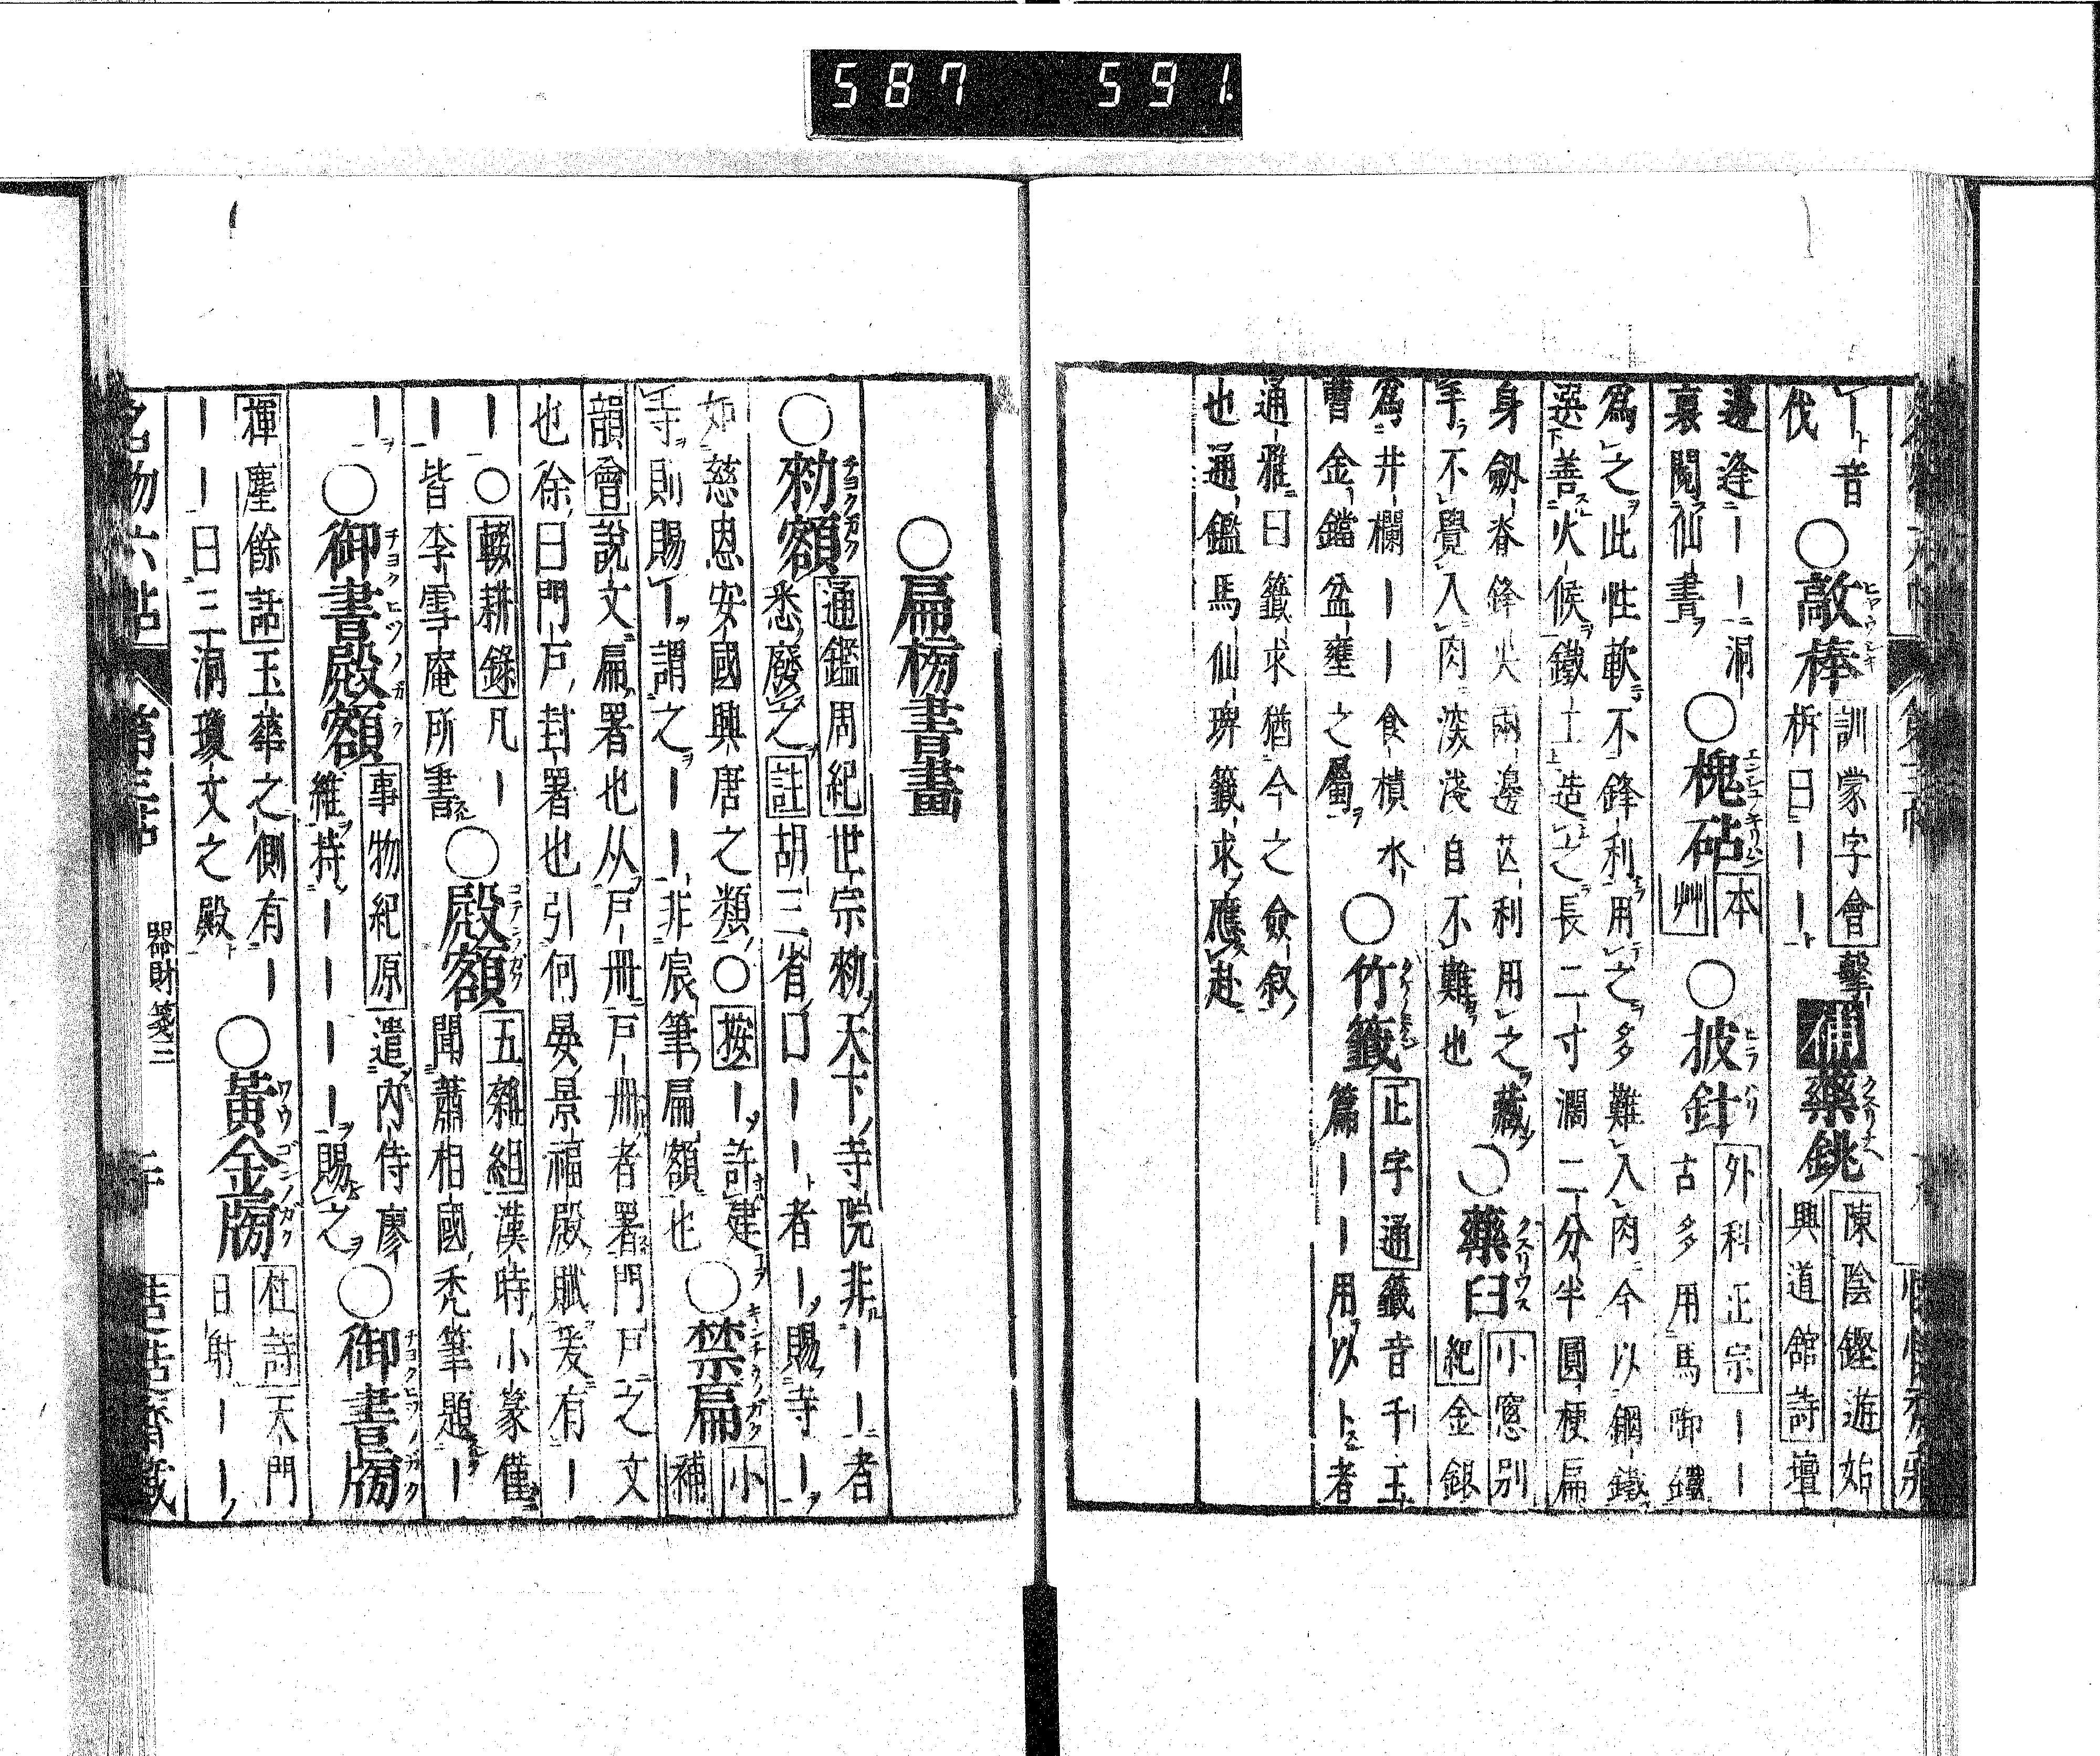 587 591
丨音
伐
○敲棒
訓蒙字會擊
柝曰丨丨
備藥銚
陳陰鏗遊始
興道館詩壇
邊逢丨丨洞
裏閱仙書
○槐砧
本
艸
○披針
外科正宗丨丨
古多用馬啣鐵
爲之此性軟不鋒利用之多難入肉今以鋼鐵
選善火候鐵工造之長二寸濶二分半圓梗扁
身劔脊鋒尖兩邊芒利用之藏
手不覺入肉深淺自不難也
○藥臼
小窓別
紀金銀
爲井欄丨丨食樻水
曹金鐺盆甕之屬
○竹籤
正字通籤音千玉
篇丨丨用以卜者
通雅曰籤求猶今之僉叙
也通鑑馬仙琕籤求應赴
○扁榜書畫
○勑額
通鑑周紀世宗勑天下寺院非丨丨者
悉廢之註胡三省曰丨丨者丨賜寺丨
如慈恩安國興唐之類○按丨許建
寺則賜丨謂之丨丨非宸筆扁額也
○禁扁
小
補
韻會說文扁署也从戶冊戶冊者署門戶之文
也徐曰門戶封署也引何晏景福殿賦爰有丨
丨○輟耕錄凡丨
丨皆李雪庵所書
○殿額
五雜組漢時小篆僅
聞蕭相國禿筆題丨
丨
○御書殿額
事物紀原遣內侍廖
維持丨丨丨丨賜之
○御書牓
揮塵餘話玉華之側有丨
丨丨曰三洞瓊文之殿
○黃金牓
杜詩天門
日射丨丨丨
名物六帖
第三帖
器財箋二